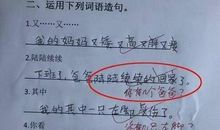 二、运用下列词语造句。
1.又……又……
我的妈妈又矮又高又胖又瘦
2.陆陆续续
下班了,爸爸陆陆续续的回家了。
3.其中
你有几个爸爸?
我的其中一只左脚受伤了。
4.你看
你有几只左脚?